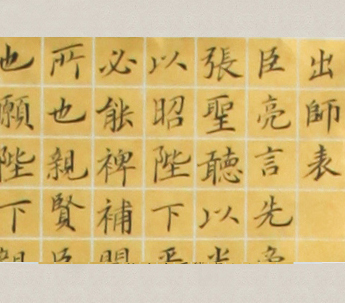 出師表
臣亮言先
張聖聽以光
以昭陛下平
必能裨補闕
所也親賢臣
也願陛下親